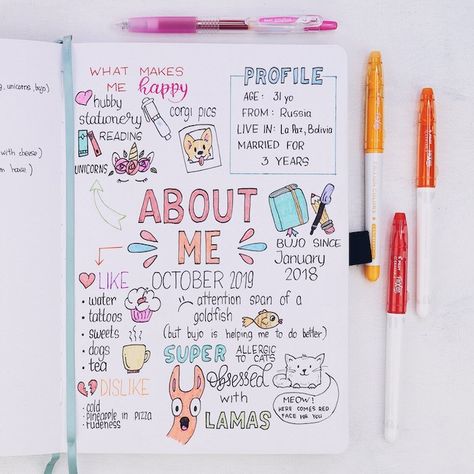 WHAT MAKES
ME happy
hubby
stationery
READING
corgi pics
UNICORNS
PROFILE
AGE: 31 yo
FROM: Russia
LIVE IN: La Paz, Bolivia
MARRIED FOR
3 YEARS
ABOUT
ME
OCTOBER 2019
BUJO SINCE
January
2018
LIKE
• water
• tattoos
• sweets
• dogs
• tea
attention span of a
goldfish
(but bujo is helping me to do better)
SUPER ALLERGIC
TO CATS
DISLIKE
• cold
• pineapple in pizza
• rudeness
Obsessed
with
LAMAS
MEOW!
HERE COMES RED
FACE
YOU
, unicorns, bujo)
with cheese)